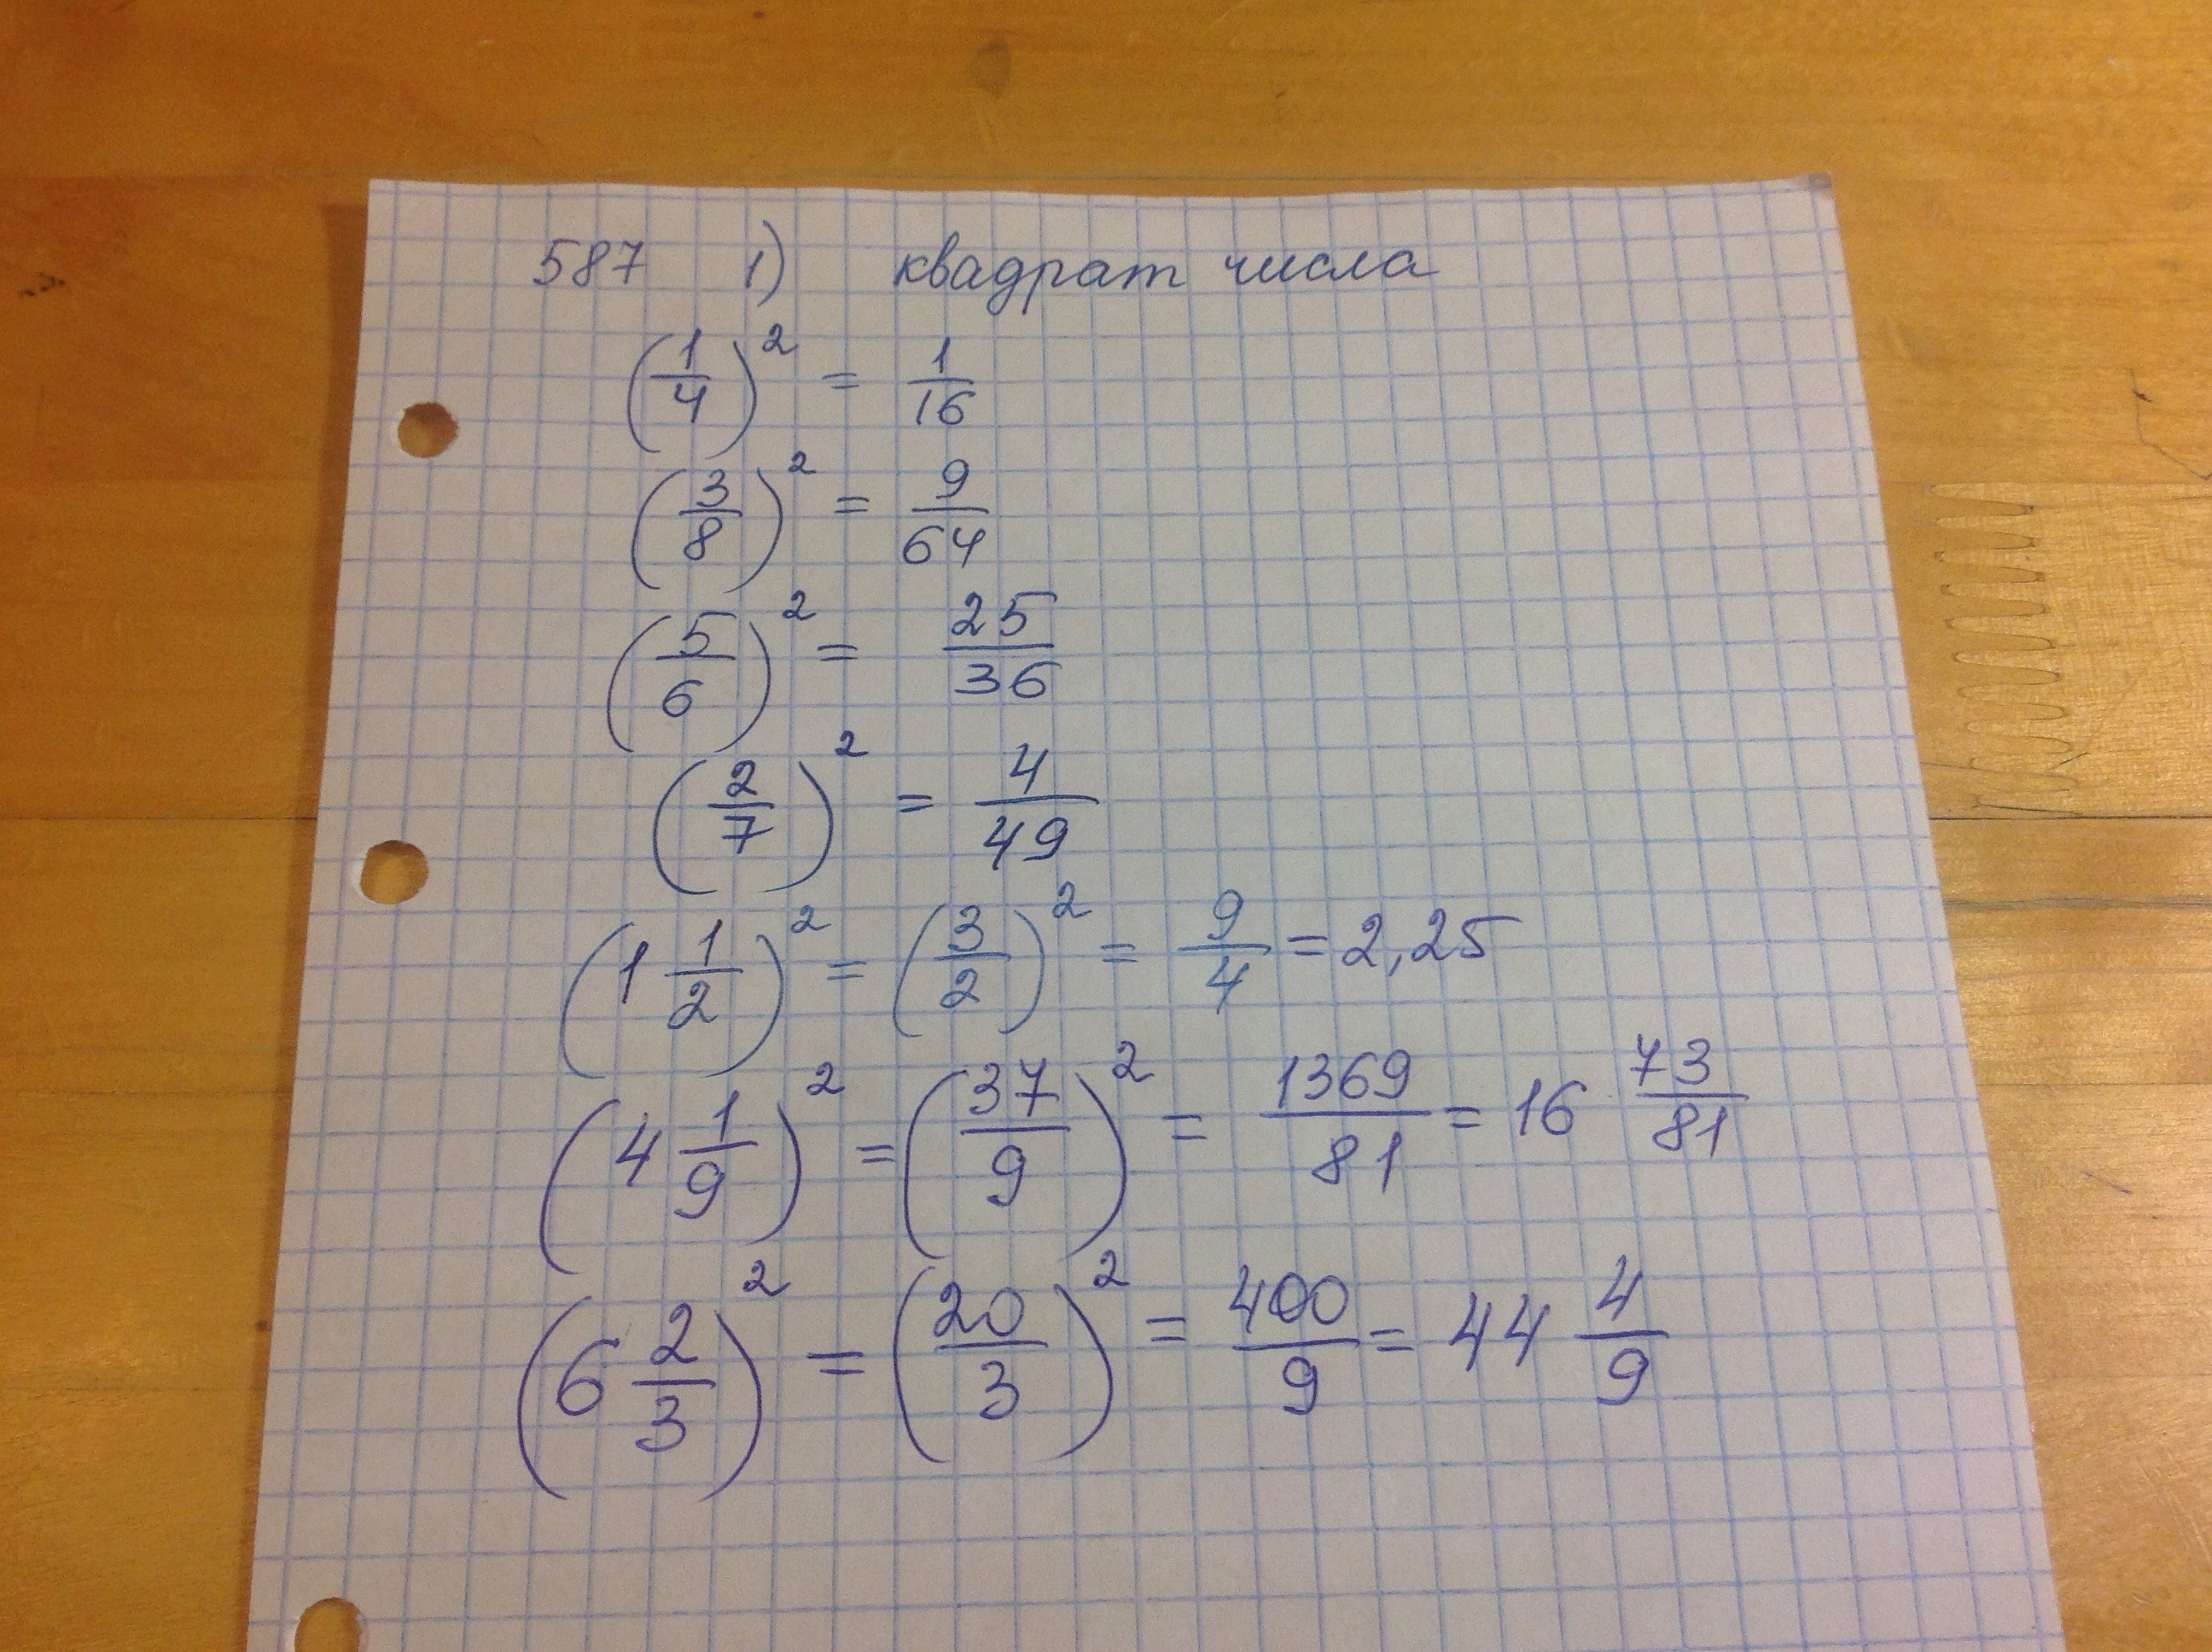 587 1) квадрат числа
(1/4)² = 1/16
(3/8)² = 9/64
(5/6)² = 25/36
(2/7)² = 4/49
(1 1/2)² = (3/2)² = 9/4 = 2,25
(4 1/9)² = (37/9)² = 1369/81 = 16 73/81
(6 2/3)² = (20/3)² = 400/9 = 44 4/9